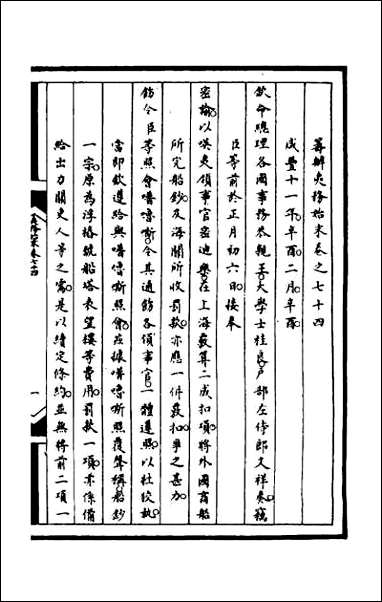 籌辦夷務始末卷之七十四
咸豐十一年辛酉二月辛酉
欽命總理各國事務恭親王大學士桂良戶部左侍郎文祥奏竊
臣等前於正月初六日接奉
密諭以𠸄夷領事官密迪樂在上海覈算二成扣項將外國商船
所完船鈔及海關所收罰款亦應一併覈扣爭之甚力
飭令臣等照會嚕嘶令其通飭各領事官一體遵照以杜狡執
當即欽遵給與嚕嘶照會在據嚕嘶照覆聲稱船鈔
一宗原為浮樁號船塔表望樓等費用罰款一項亦係備
給出力關吏人等之需是以續定條約並無將前二項一